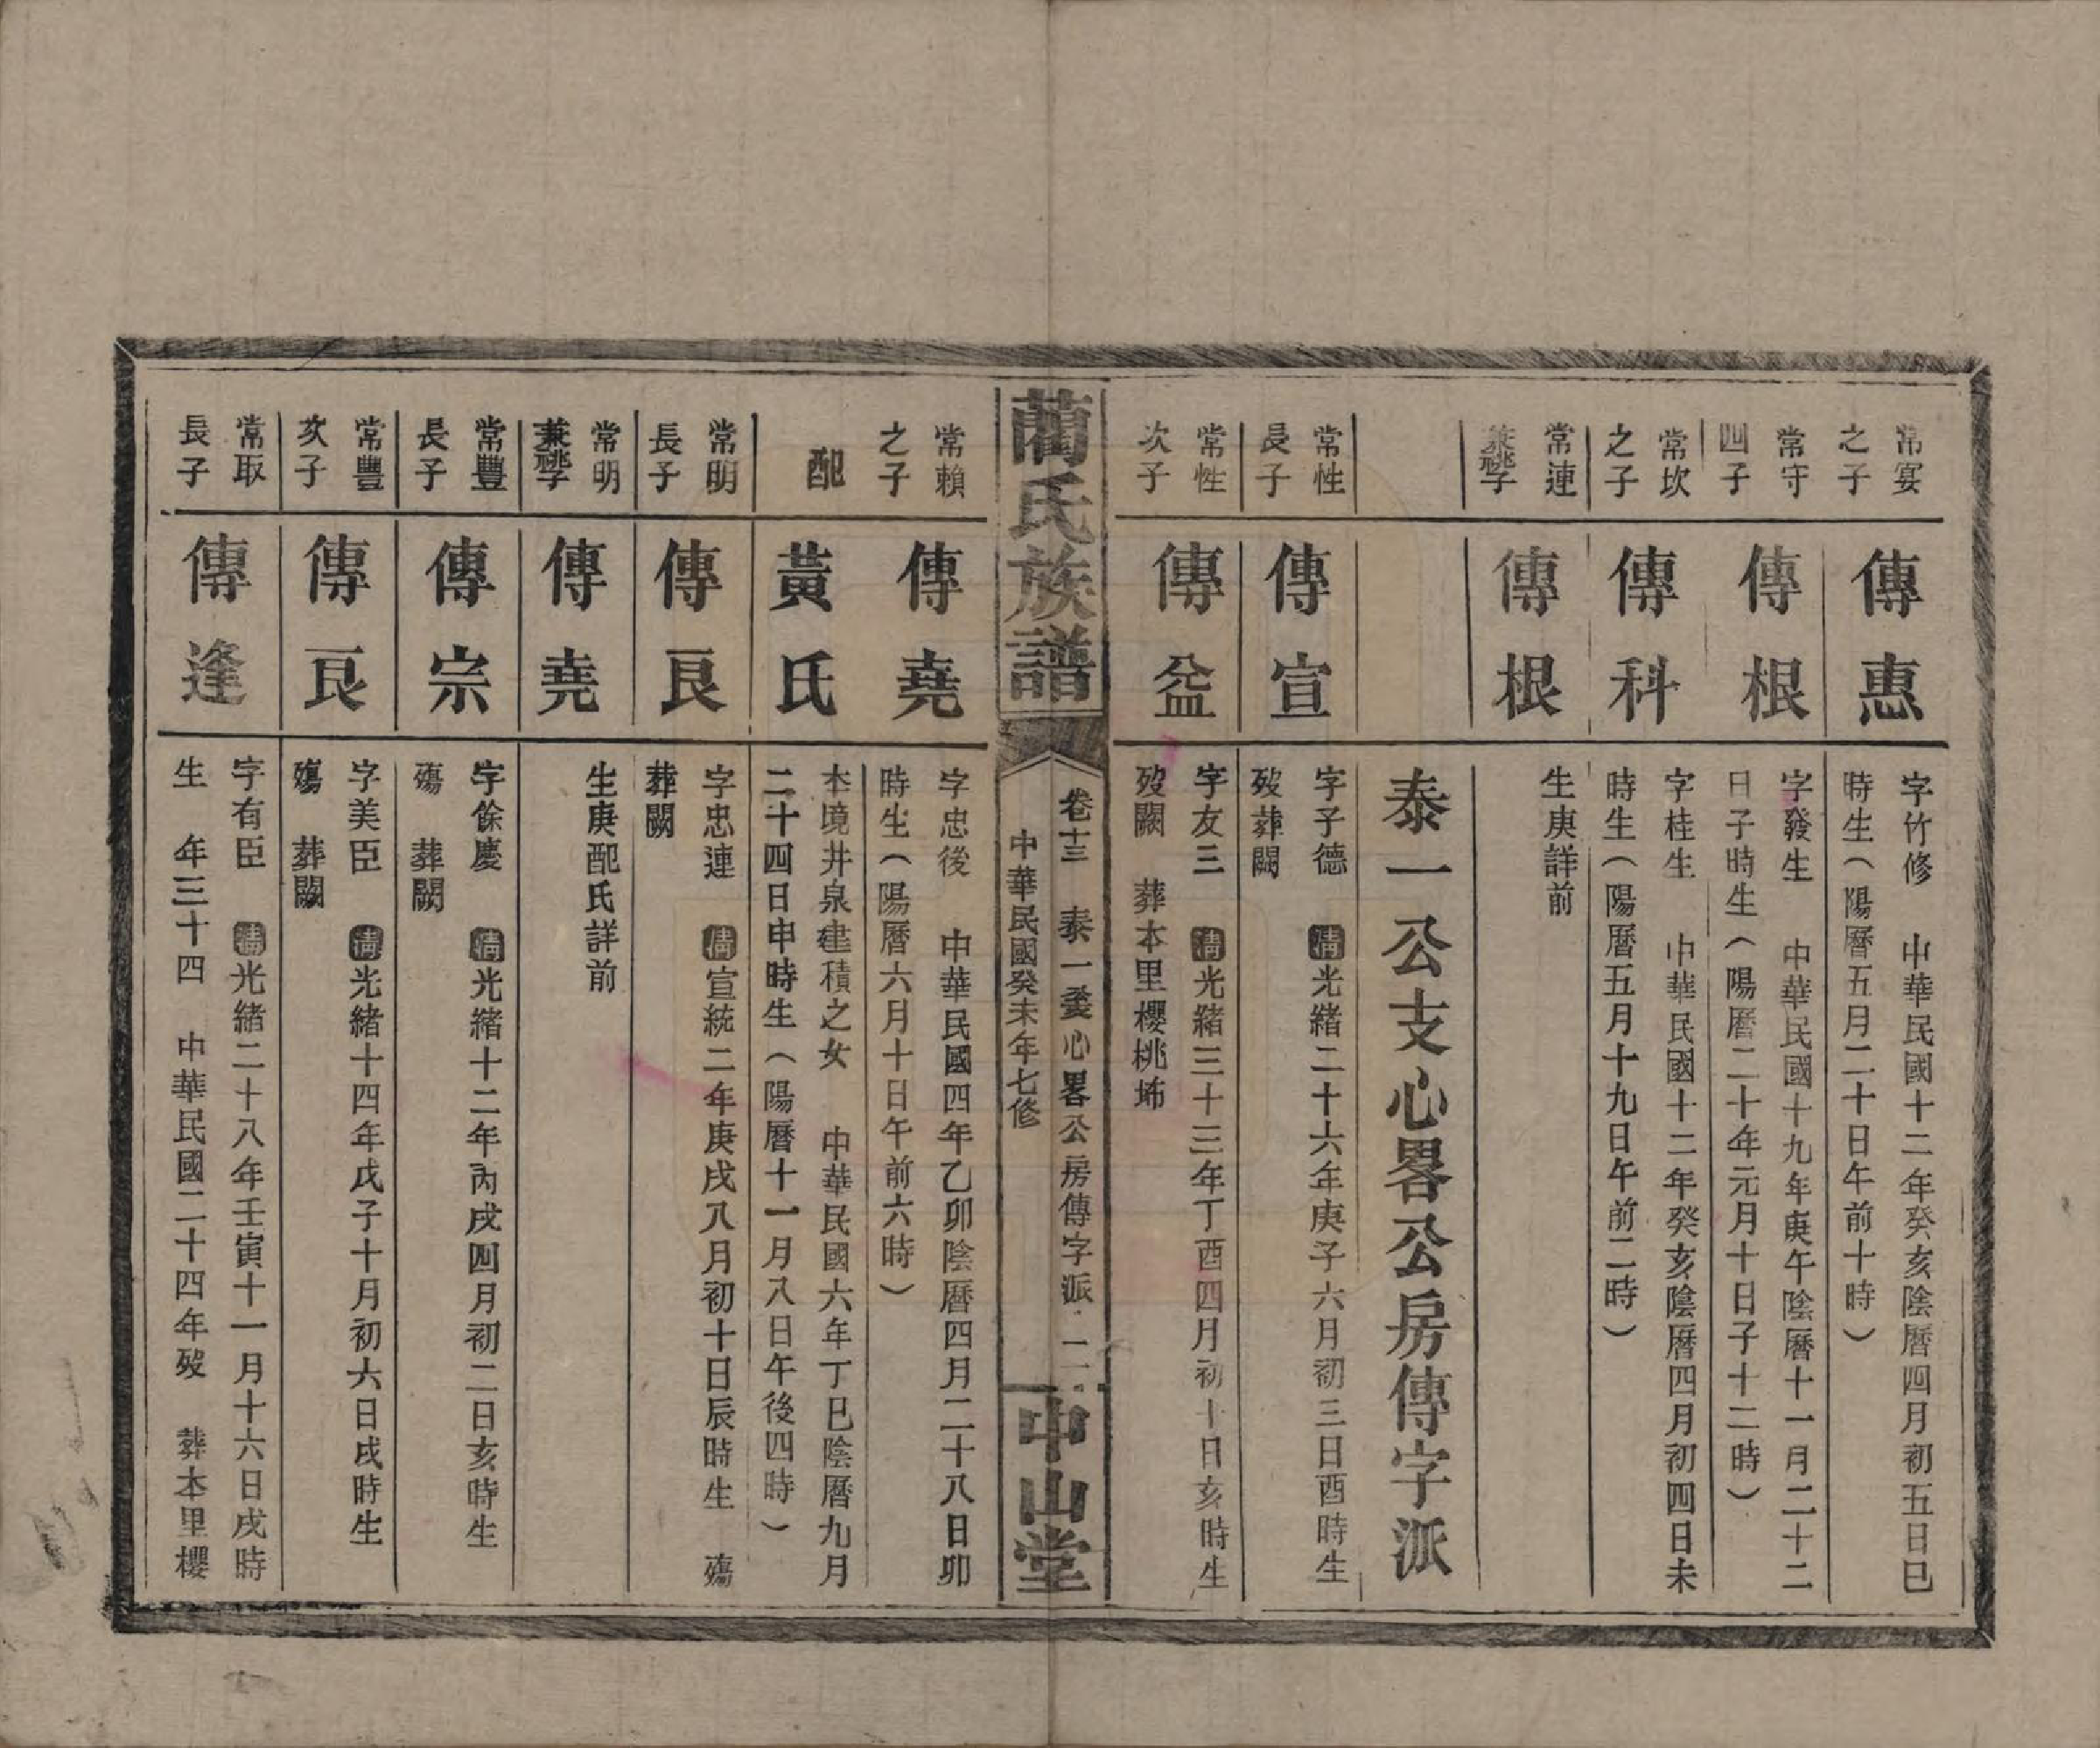 常宴
之子
傳惠
字竹修　中華民國十二年癸亥陰曆四月初五日巳
時生（陽曆五月二十日午前十時）
常守
四子
傳根
字發生　中華民國十九年庚午陰曆十一月二十二
日子時生（陽曆二十年元月十日子十二時）
常坎
之子
傳科
字桂生　中華民國十二年癸亥陰曆四月初四日未
時生（陽曆五月十九日午前二時）
常連
兼祧子
傳根
生庚詳前
泰一公支心畧公房傳字派
常性
長子
傳宣
字子德　清光緒二十六年庚子六月初三日酉時生
歿葬闕
常性
次子
傳益
字友三　清光緒三十三年丁酉四月初十日亥時生
歿闕　葬本里櫻桃垇
藺氏族譜
卷十三　泰一叢心畧公房傳字派　二
中華民國癸未年七修
中山堂
常賴
之子
傳堯
字忠後　中華民國四年乙卯陰曆四月二十八日卯
時生（陽曆六月十日午前六時）
配
黃氏
本境井泉建積之女　中華民國六年丁巳陰曆九月
二十四日申時生（陽曆十一月八日午後四時）
常明
長子
傳良
字忠連　清宣統二年庚戌八月初十日辰時生　殤
葬闕
常明
兼祧子
傳堯
生庚配氏詳前
常豐
長子
傳宗
字餘慶　清光緒十二年丙戌四月初二日亥時生
殤　葬闕
常豐
次子
傳良
字美臣　清光緒十四年戊子十月初六日戌時生
殤　葬闕
常取
長子
傳逢
字有臣　清光緒二十八年壬寅十一月十六日戌時
生　年三十四　中華民國二十四年歿　葬本里櫻